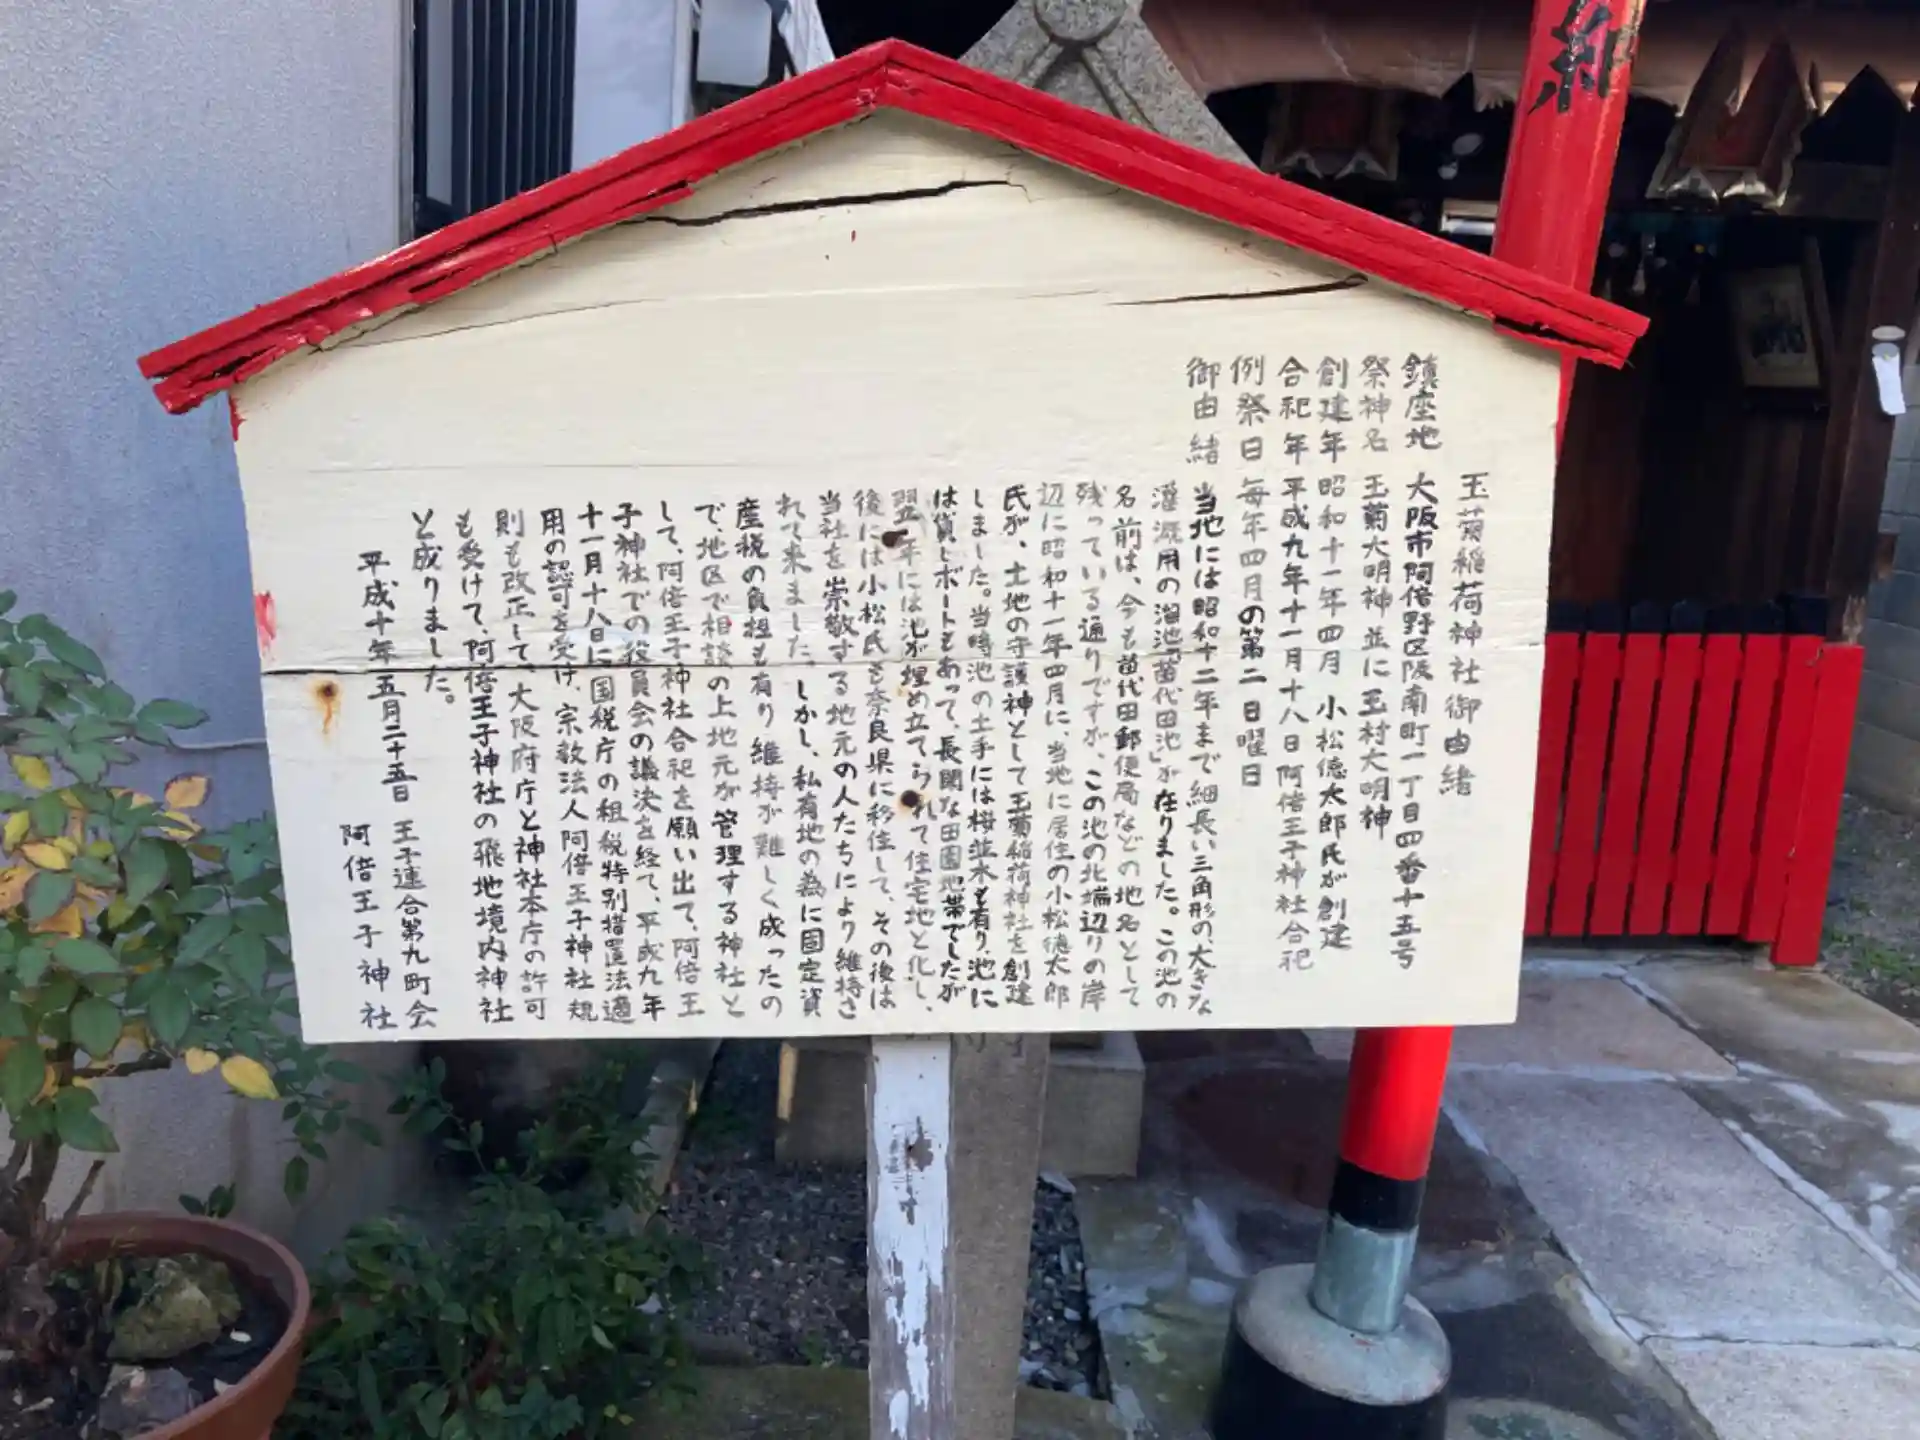 玉菊稲荷神社御由緒
鎮座地 大阪市阿倍野区阪南町一丁目四番十五号
祭神名 玉菊大明神並に玉村大明神
創建年 昭和十一年四月 小松徳太郎氏が創建
合祀年 平成九年十一月十八日阿倍王子神社合祀
例祭日 毎年四月の第二日曜日
御由緒 当地には昭和十二年まで細長い三角形の、大きな
灌漑用の溜池「苗代田池」が在りました。この池の
名前は、今も苗代田郵便局などの地名として
残っている通りですが、この池の北端辺りの岸
辺に昭和十一年四月に、当地に居住の小松徳太郎
氏が、土地の守護神として玉菊稲荷神社を創建
しました。当時池の土手には桜並木も有り、池に
は貸しボートもあって、長閑な田園地帯でしたが
翌年には池が埋め立てられて住宅地と化し、
後には小松氏も奈良県に移住して、その後は
当社を崇敬する地元の人たちにより維持さ
れて来ました。しかし、私有地の為に固定資
産税の負担も有り維持が難しく成ったの
で、地区で相談の上地元が管理する神社と
して、阿倍王子神社合祀を願い出て、阿倍王
子神社での役員会の議決を経て、平成九年
十一月十八日に国税庁の租税特別措置法適
用の認可を受け、宗教法人阿倍王子神社規
則も改正して、大阪府庁と神社本庁の許可
も受けて、阿倍王子神社の飛地境内神社
と成りました。
平成十年五月二十五日 王子連合第九町会
阿倍王子神社